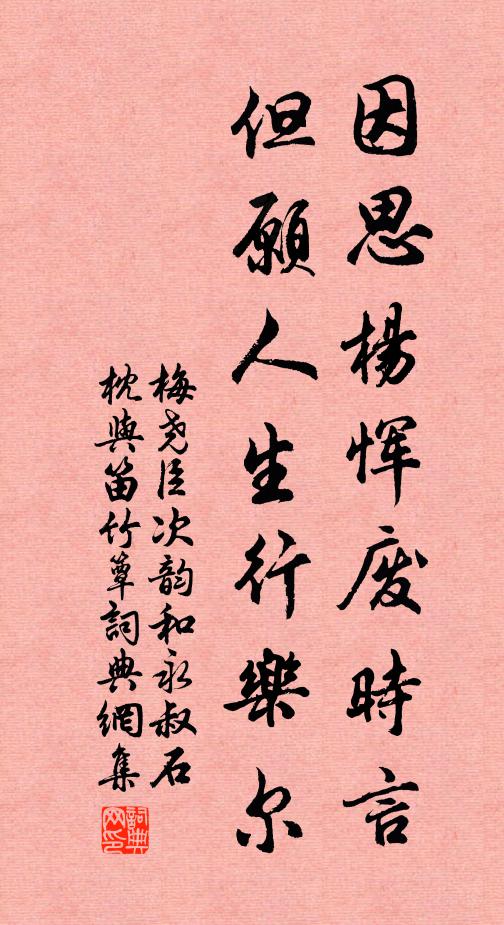 因思楊恽废時言
但願人生行樂尔
梅尧臣次韵和永叔石
枕與笛竹簟詞典網集
詞典网印